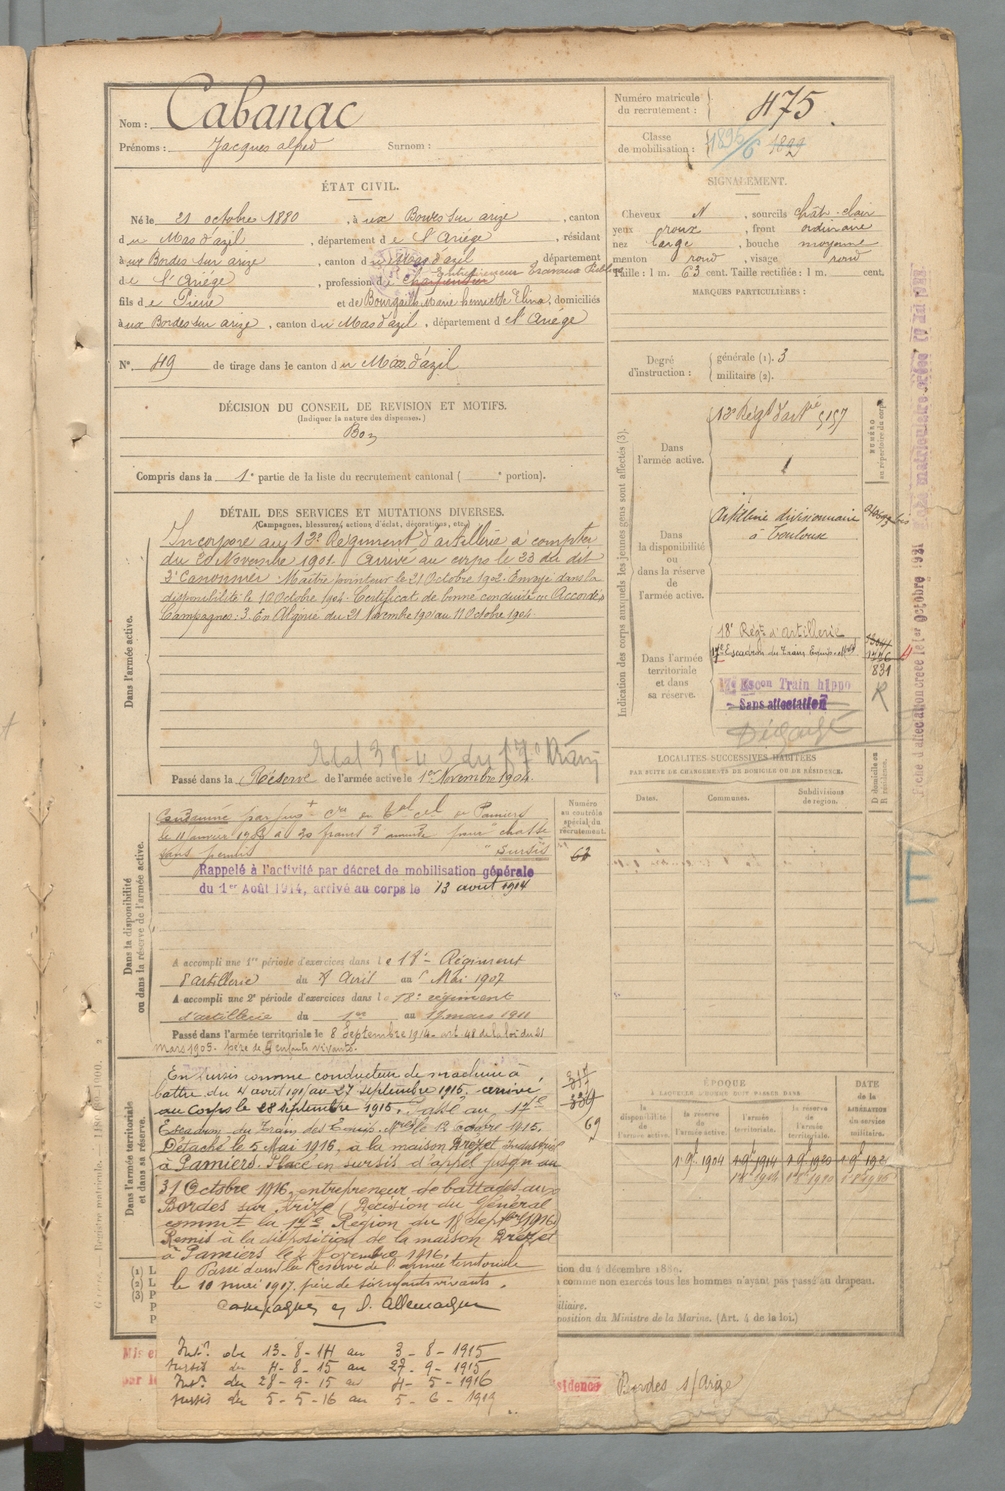 Nom : Cabanac
Prénoms : Jacques alfed Surnom :
Numéro matricule du recrutement : 475
Classe de mobilisation : 1896/6 1899
ÉTAT CIVIL.
Né le 21 octobre 1880, à ux Bordes sur arize, canton
du Mas d'azil, département de l'Ariége, résidant
à ux Bordes sur arize, canton du Mas d'azil département
de l'Ariége, profession de charpentier Entrepreneur Travaux Publics
fils de Pierre et de Bourgail Marie henriette Elina, domiciliés
à ux Bordes sur arize, canton du Mas d'azil, département de l'Ariége
N° 49 de tirage dans le canton du Mas d'azil
SIGNALEMENT.
Cheveux N, sourcils chât. clair
yeux roux, front ordinaire
nez large, bouche moyenne
menton rond, visage rond
Taille : 1 m. 63 cent. Taille rectifiée : 1 m. cent.
MARQUES PARTICULIÈRES :
Degré d'instruction : générale (1). 3
militaire (2).
DÉCISION DU CONSEIL DE REVISION ET MOTIFS.
(Indiquer la nature des dispenses.)
Bon
Compris dans la 1e partie de la liste du recrutement cantonal ( e portion).
DÉTAIL DES SERVICES ET MUTATIONS DIVERSES.
(Campagnes, blessures, actions d'éclat, décorations, etc.)
Dans l'armée active.
Incorporé au 13e Régiment d'artillerie à compter
du 20 Novembre 1901. Arrivé au corps le 23 du dit
2e Canonnier. Maitre pointeur le 21 Octobre 1902. Envoyé dans la
disponibilité le 10 Octobre 1904. Certificat de bonne conduite Accordé
Campagnes : 3. En Algérie du 21 Novembre 1901 au 11 Octobre 1904
Passé dans la Réserve de l'armée active le 1er Novembre 1904.
Indication des corps auxquels les jeunes gens sont affectés (3).
Dans l'armée active. 13e Régt d'artie 5157
NUMÉRO au répertoire du corps.
Dans la disponibilité ou dans la réserve de l'armée active.
Artillerie divisionnaire
à Toulouse
Dans l'armée territoriale et dans sa réserve.
18e Régt d'artillerie
17e Escadron du Train
1776
831
17e Escon Train hippo
Sans affectation
Dégagé
LOCALITÉS SUCCESSIVES HABITÉES
PAR SUITE DE CHANGEMENTS DE DOMICILE OU DE RÉSIDENCE.
Dates. Communes. Subdivisions de région. D domicile ou R résidence.
Dans la disponibilité ou dans la réserve de l'armée active.
Numéro au contrôle spécial du recrutement.
62
Condamné par jugt de Pamiers
le 11 janvier 1908 à 20 francs d'amende pour chasse
sans permis sursis
Rappelé à l'activité par décret de mobilisation générale
du 1er Août 1914, arrivé au corps le 13 août 1914
A accompli une 1re période d'exercices dans le 18e Régiment
d'artillerie du 8 Avril au Mai 1907
A accompli une 2e période d'exercices dans le 18e régiment
d'artillerie du 1er au 17 mars 1911
Passé dans l'armée territoriale le 8 Septembre 1914 art. 48 de la loi du 21
mars 1905. père de 4 enfants vivants.
Dans l'armée territoriale et dans sa réserve.
En sursis comme conducteur de machine à
battre du 4 août 1915 au 27 septembre 1915. arrivé
au corps le 28 septembre 1915. Passé au 17e
Escadron du Train des Equip. Mres le 12 Octobre 1915.
Détaché le 5 Mai 1916, à la maison Drezet Industriel
à Pamiers. Placé en sursis d'appel jusqu'au
31 Octobre 1916, entrepreneur de battages aux
Bordes sur Arize (Décision du Général
commt la 17e Région du 18 septbre 1916)
Remis à la disposition de la maison Drezet
à Pamiers le 4 Novembre 1916.
Passé dans la Réserve de l'armée territoriale
le 10 mai 1917. père de six enfants vivants.
Campagnes c/ l'Allemagne
Intr du 13-8-14 au 3-8-1915
sursis du 4-8-15 au 27-9-1915
Intr du 28-9-15 au 4-5-1916
sursis du 5-5-16 au 5-6-1919
317
69
ÉPOQUE
À LAQUELLE L'HOMME DOIT PASSER DANS
la disponibilité de l'armée active. la réserve de l'armée active. l'armée territoriale. la réserve de l'armée territoriale.
DATE de la LIBÉRATION du service militaire.
1 9bre 1904 1 9bre 1914 1 9bre 1920
tion du 4 décembre 1889.
à comme non exercés tous les hommes n'ayant pas passé au drapeau.
iliaire.
position du Ministre de la Marine. (Art. 4 de la loi.)
sidence Bordes s/Arize